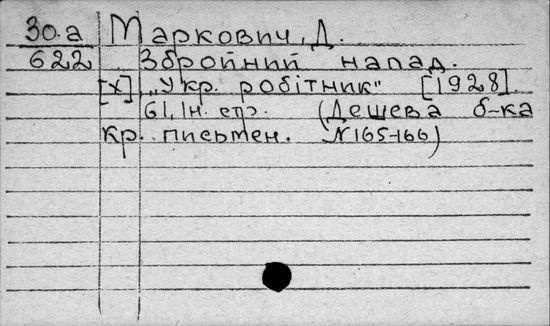 30.а Маркович, Д.
622 Збройний напад.
[х] „Укр. робітник" [1928]
61, Ін. стр. (Дешева б-ка
кр. письмен. N165-166)